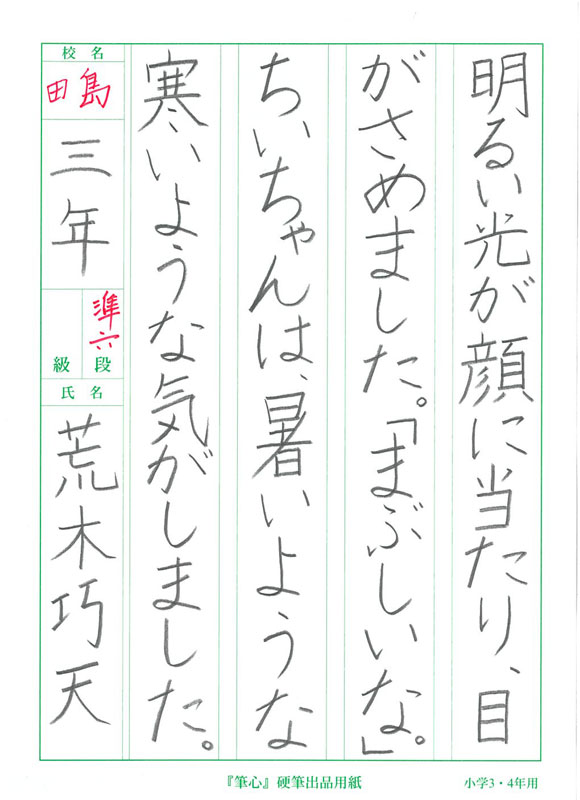 明るい光が顔に当たり、目
がさめました。「まぶしいな。」
ちいちゃんは、暑いような
寒いような気がしました。
校名
田島
三年
準六
級段
氏名
荒木巧天
『筆心』硬筆出品用紙
小学3・4年用